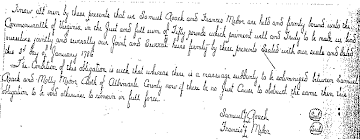 Know all men by these presents that we Samuel Roach and Frances Melor are held and firmly bound unto the
Commonwealth of Virginia in the Just and full sum of Fifty pounds which payment well and truly to be made we bind
ourselves jointly and severally our Joint and Several heirs firmly by these presents Sealed with our seals and dated
this 3 day of January 1786
The Condition of this Obligation is such that whereas there is a marriage suddenly to be solemnized between Samuel
Roach and Molly Melor Both of Albemarle County now if there be no Just Cause to obstruct the same then this
obligation to be void otherwise to remain in full force.
Samuel Roach
Frances Melor